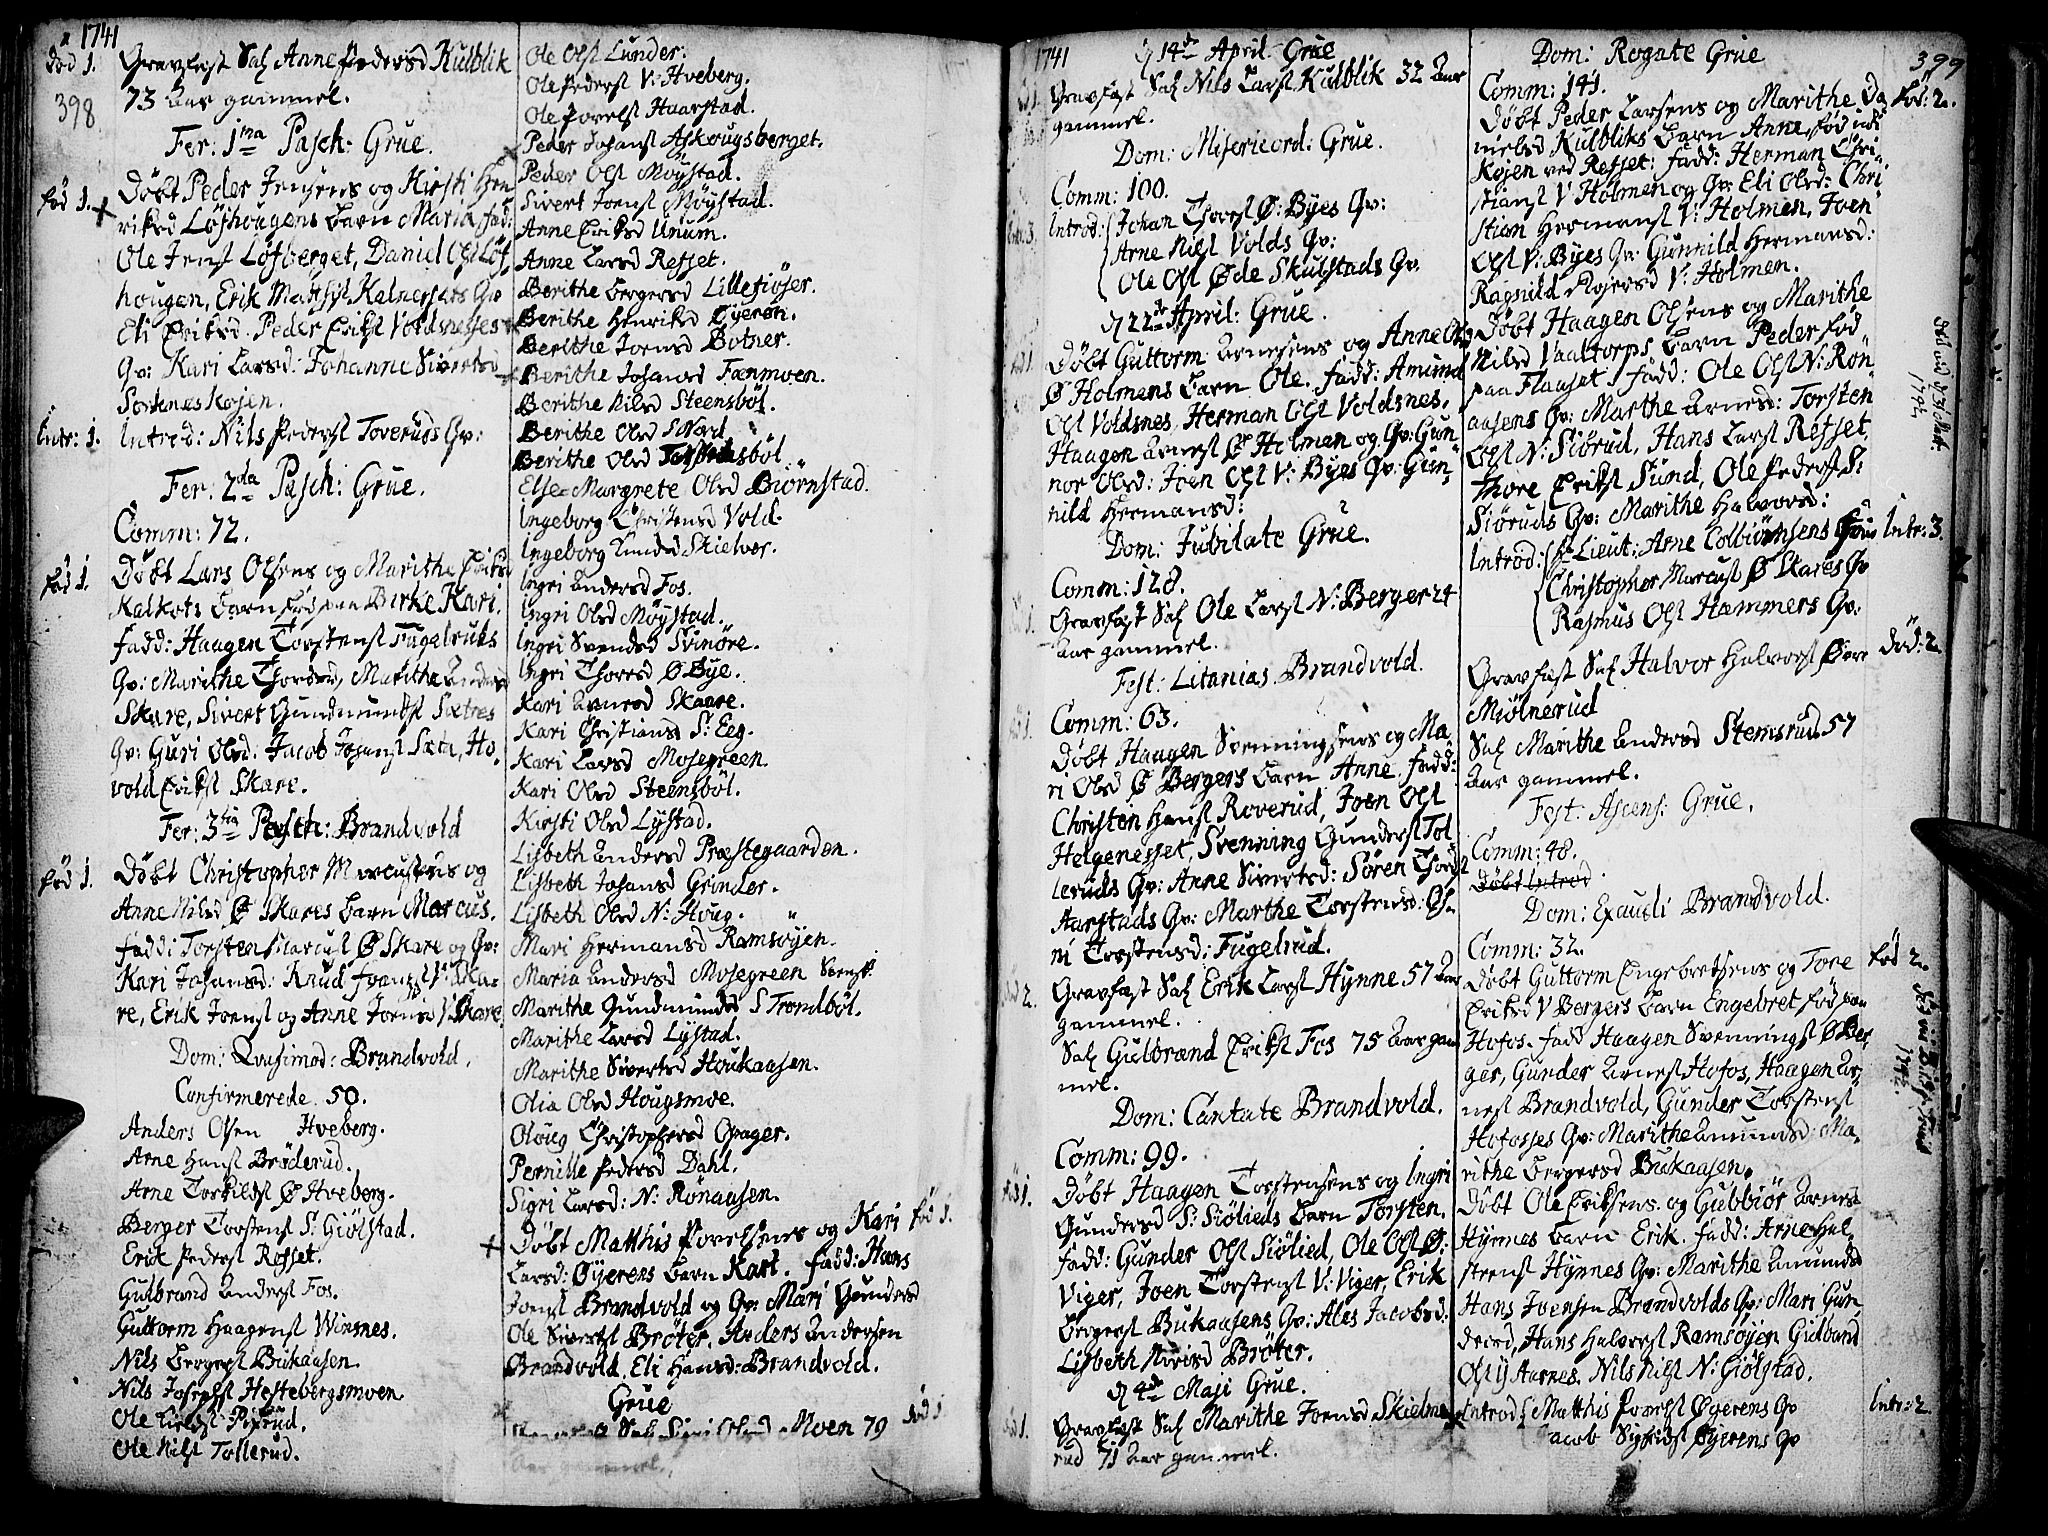 1741
död 1.
398
Gravfæst Sal Anne Pedersd Kulblik
73 Aar gammel.
Fer: 1ma Pasch: Grue.
föd 1.
Döbt Peder Jensens og Kirsti Hen
riksd Löfhougens Barn Maria fad:
Ole Jensl Löfberget, Daniel Olsl Löf
hougen, Erik Matthisl Kalnessets Qv
Eli Eriksd. Peder Eriksl Voldsnesses
Qv: Kari Larsd: Johanne Sivertsd
Sortenæskojen.
Intr: 1.
Introd: Nils Pedersl Toveruds Qv:
Fer: 2da Pasch: Grue.
Comm: 72.
föd 1.
Döbt Lars Olsens og Marithe Eriksd
Kalkots Barn föd paa Birke Kari.
fadd: Haagen Torstensl Fugelruds
Qv: Marithe Thorsd, Marithe Andersd
Skare, Sivert Gundmundsl Sætres
Qv: Guri Olsd. Jacob Johansl Sæta, Ho
vold Eriksl Skare.
Fer: 3tia Pasch: Brandvold
föd 1.
Döbt Christopher Marcusens og
Anne Nilsd Ø Skares Barn Marcus.
fadd: Torsten Marcusl Ø Skare og Qv:
Kari Johansd: Knud Franzsl V: Ska
re, Erik Joensl og Anne Joensd V Skare.
Dom: Qvasimod: Brandvold.
Confirmerede 50.
Anders Olsen Hveberg.
Arne Hansl Bröderud.
Arne Torkildsl Ø Hveberg.
Berger Torstensl S: Giölstad.
Erik Pedersl Rosset.
Gulbrand Andersl Fos.
Guttorm Haagensl Winsnes.
Nils Bergersl Bukaasen.
Nils Josephsl Hestebergsmoen
Ole Nilsl Tollerud.
Ole Olsl Lunder:
Ole Pedersl V: Hveberg.
Ole Povelsl Haarstad.
Peder Johansl Askougsberget.
Peder Olsl Möystad.
Sivert Joensl Möystad.
Anne Eriksd Unum.
Anne Larsd Refset.
Berithe Bergersd Lillefiöser.
Berithe Henriksd Öyeren.
Berithe Joensd Botner.
Berithe Johansd Fæmmoen.
Berithe Nilsd Steensböl.
Berithe Olsd S Nord
Berithe Olsd
Else Margrete Olsd Biörnstad.
Ingeborg Christensd Vold.
Ingeborg Knudsd Skielver.
Ingri Andersd Fos.
Ingri Olsd Möystad.
Ingri Svendsd Svinöre.
Ingri Thoresd Ø Bye.
Kari Arnesd Skaare.
Kari Christiansd S: Eeg.
Kari Larsd Mosegreen
Kari Olsd Steensböl.
Kirsti Olsd Lystad.
Lisbeth Andersd Præstegaarden.
Lisbeth Johansd Grinder.
Lisbeth Olsd N: Houg.
Mari Hermansd Ramsöyen.
Maria Andersd Mosegreen
Marithe Gundmundsd S Trondböl.
Marithe Larsd Lystad.
Marithe Sivertsd Houkaasen.
Olia Olsd Hougsmoe.
Oloug Christophersd Opager.
Pernille Pedersd Dahl.
Sigri Larsd: N: Rönaasen.
Döbt Matthis Povelsens og Kari föd 1.
Larsd: Öyerens Barn Kari. fadd: Hans
Joensl Brandvold og Qv: Mari Gundersd
Ole Sivertsl Bröter, Anders Andersen
Brandvold, Eli Hansd: Brandvold.
Grue
död 1
Moen 79
Aar gammel.
1741
D 14de April Grue
Gravfæst Sal Nils Larsl Kulblik 32 Aar
gammel.
Dom: Misericord: Grue.
Comm: 100.
Introd: Johan Thorsl Ø: Byes Qv:
Arne Nilsl Volds Qv:
Ole Olsl Øde Skulstads Qv.
D 22de April: Grue.
Döbt Guttorm Arnesens og Anne Olsd
Ø Holmens Barn Ole. fadd: Amund
Olsl Voldsnes, Herman Olsl Voldsnes,
Haagen Arnesl Ø Holman og Qv: Gun
nor Olsd: Joen Olsl V: Byes Qv: Gun
nild Hermansd:
Dom: Jubilate Grue.
Comm: 128.
Gravfæst Sal Ole Larsl N: Berger 24
Aar gammel.
Fest: Litanias Brandvold.
Comm: 63.
Döbt Haagen Svenningsens og Ma
ri Olsd Ø Bergers Barn Anne. fadd:
Christen Hansl Roverud, Joen Olsl
Helgenesset, Svenning Gundersl Tol
leruds Qv: Anne Sivertsd: Sören Thordsl
Aarstads Qv: Marthe Torstensd:
ni Torstensd: Fugelrud.
Gravfæst Sal Erik Larsl Hynne 57 Aar
gammel.
Sal Gulbrand Eriksl Fos 75 Aar gam
mel.
Dom: Cantate Brandvold.
Comm: 99.
Döbt Haagen Torstensens og Ingri
Gundersd S: Siöliens Barn Torsten.
fadd: Gunder Olsl Siölied, Ole Olsl Ø:
Viger, Joen Torstensl V: Viger, Erik
Bergersl Bukaasens Qv: Ales Jacobsd:
Lisbeth Bröter.
D 4de Maji Grue.
Gravfæst Sal Marithe Joensd Skielme
rud 71 Aar gammel.
399
Dom: Rogate Grue
Comm: 141.
föd: 2.
Döbt Peder Larsens og Marithe Da
nielsd Kulbliks Barn Anne, föd udi
Kojen ved Refset: fadd: Herman Chri
stiansl V Holmen og Qv: Eli Olsd: Chri
stian Hermansl V: Holmen, Joen
Olsl V: Byes Qv: Gunnild Hermansd:
Ragnild V: Holmen.
Döbt Haagen Olsens og Marithe
Nilsd Vaaltorps Barn Peder föd
paa Flaaset. fadd: Ole Olsl N: Rön
aasens Qv: Marthe Arnesd: Torsten
Olsl N: Siörud, Hans Larsl Refset,
Thore Eriksl Sund, Ole Pedersl S:
Siöruds Qv: Marithe Halvorsd:
Intr: 3
Introd: Pr: Lieut: Arne Colbiörnsens Frue
Christopher Marcusl Ø Skares Qv
Rasmus Olsl Hammers Qv.
död: 2
Gravfæst Sal Halvor Halvorsl Øvre
Miölnerud
Sal Marithe Andersd Stemsrud 57
Aar gammel.
Fest: Ascens: Grue.
Comm: 48.
Döbt Introd.
Dom: Exaudi Brandvold.
Comm: 32.
föd 2.
Döbt Guttorm Engebretsens og Tore
Eriksd V Bergers Barn Engebret föd paa
Hofos. fadd Haagen Svenningsl Ø Ber
ger, Gunder Arnesl Hofos, Haagen Ar
nesl Brandvold, Gunder Torstensl
Hofosses Qv: Marithe Amundsd: Ma
rithe Bergersd Bukaasen.
Döbt Ole Eriksens og Gubbiör Arnesd
Hynnes Barn Erik. fadd: Arne Hal
stensl Hynnes Qv: Marithe Amundsd
Hans Joensen Brandvolds Qv: Mari Gun
dersd, Hans Halvorsl Ramsöyen Gulbrand
Olsl Aarnes, Nils Nilsl N: Giölstad.
Intr: 2
Introd: Matthis Povelsl Öyerens Qv
Jacob Sigfridsl Öyerens Qv